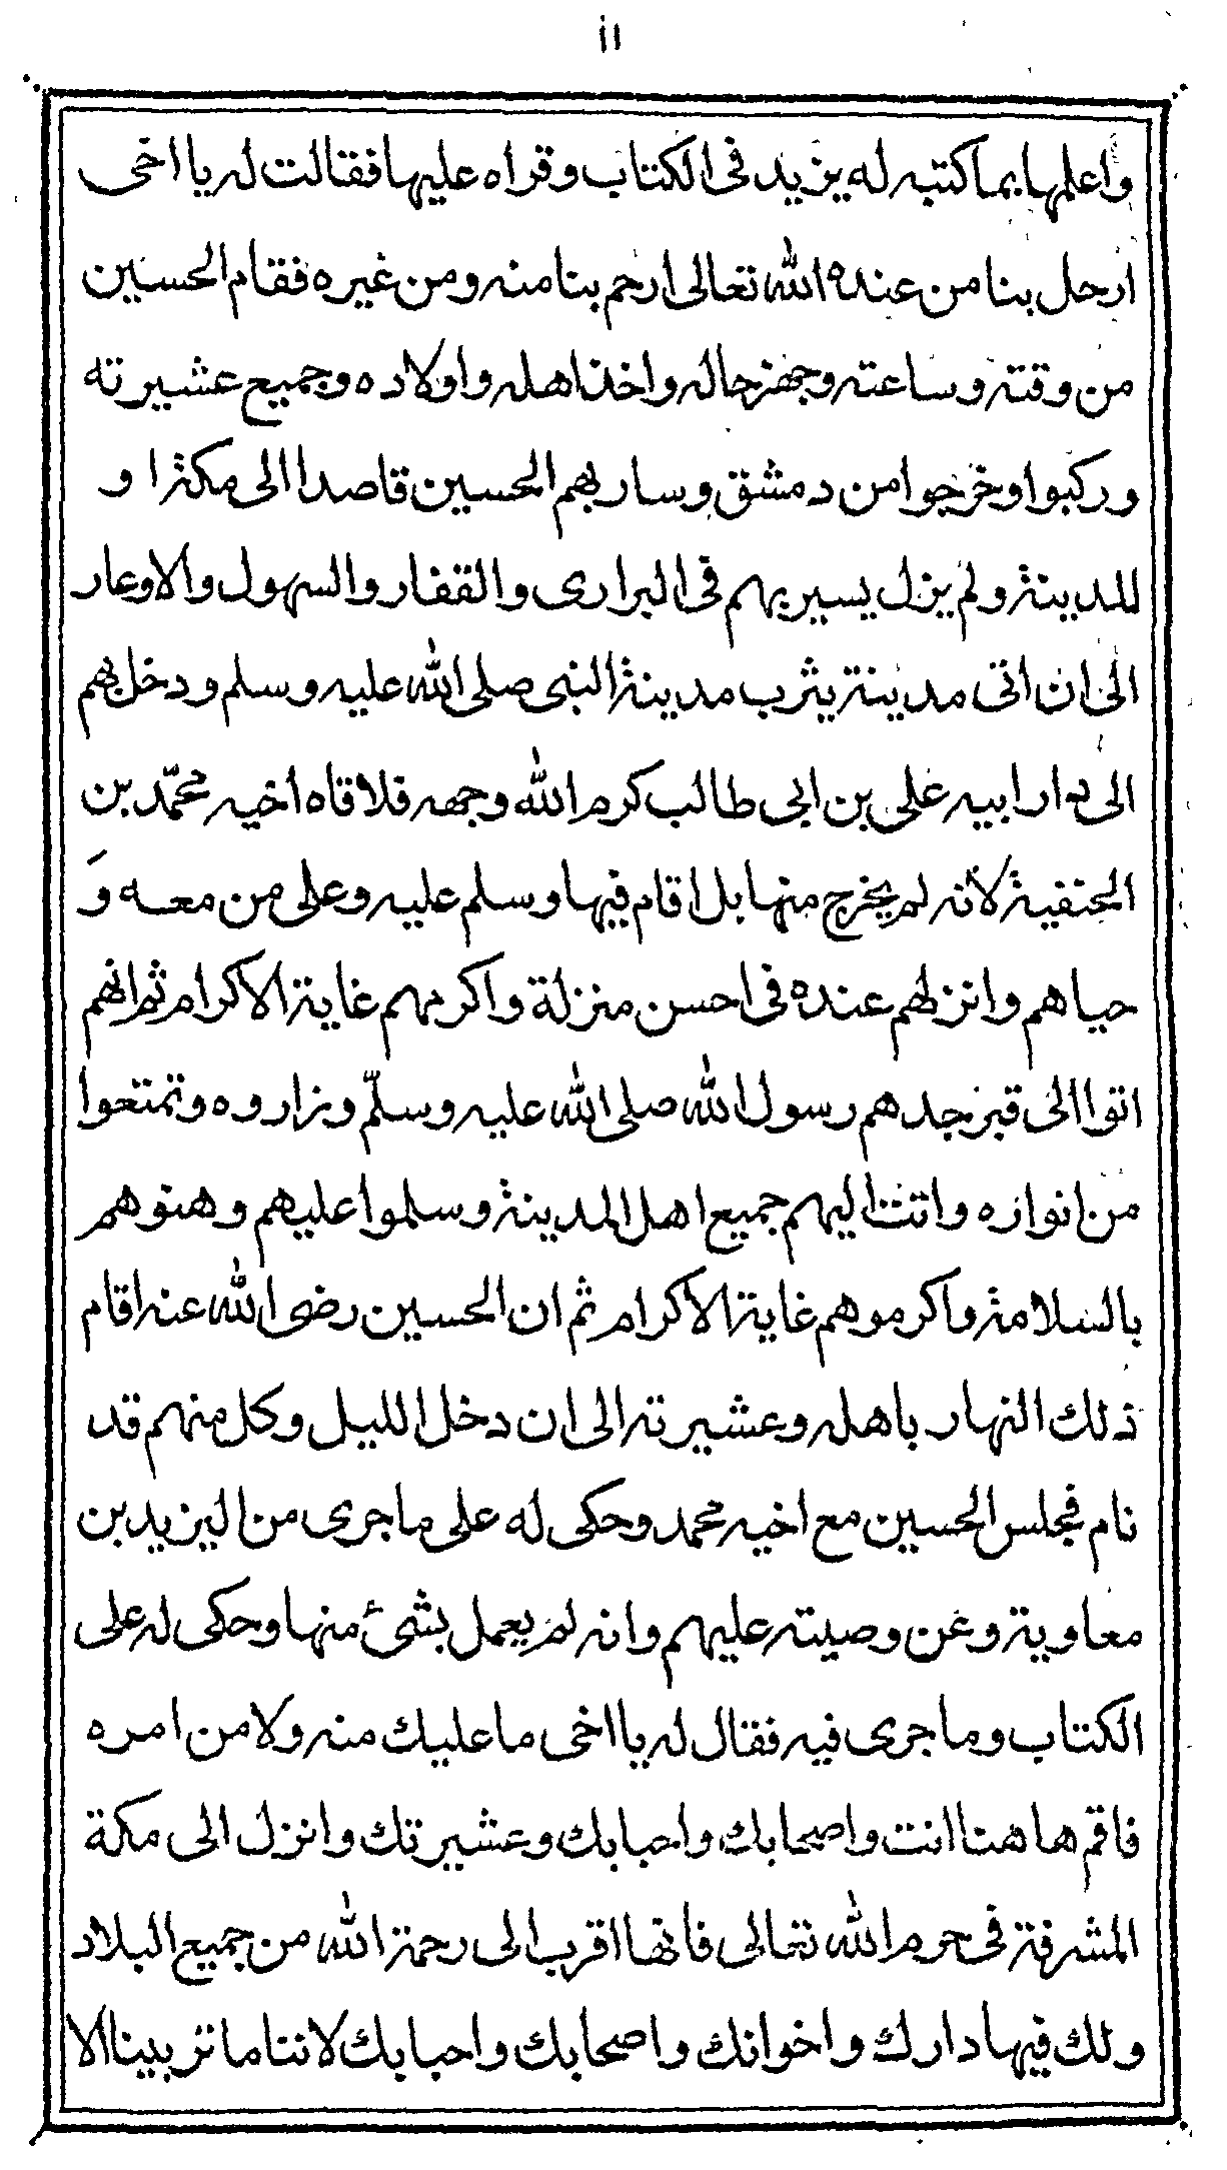 ١١
واعلمها بما كتبه له يزيد فى الكتاب وقراه عليها فقالت له يا اخى
ارحل بنا من عنده الله تعالى ارحم بنا منه ومن غيره فقام الحسين
من وقته وساعته وجهز حاله واخذ اهله واولاده وجميع عشيرته
وركبوا وخرجوا من دمشق وسار بهم الحسين قاصدا الى مكة او
للمدينة ولم يزل يسير بهم فى البرارى والقفار والسهول والاوعار
الى ان اتى مدينة يثرب مدينة النبى صلى الله عليه وسلم ودخل بهم
الى دار ابيه على بن ابى طالب كرم الله وجهه فلاقاه اخيه محمّد بن
الحنفية لانه لم يخرج منها بل اقام فيها وسلم عليه وعلى من معه وَ
حياهم وانزلهم عنده فى احسن منزلة واكرمهم غاية الاكرام ثم انهم
اتوا الى قبر جدهم رسول الله صلى الله عليه وسلّم وزاروه وتمتعوا
من انواره واتت اليهم جميع اهل المدينة وسلموا عليهم وهنوهم
بالسلامة واكرموهم غاية الاكرام ثم ان الحسين رضى الله عنه اقام
ذلك النهار باهله وعشيرته الى ان دخل الليل وكل منهم قد
نام فجلس الحسين مع اخيه محمد وحكى له على ما جرى من اليزيد بن
معاوية وعن وصيته عليهم وانه لم يعمل بشىء منها وحكى له على
الكتاب وما جرى فيه فقال له يا اخى ما عليك منه ولا من امره
فاقم هاهنا انت واصحابك واحبابك وعشيرتك وانزل الى مكة
المشرفة فى حرم الله تعالى فانها اقرب الى رحمة الله من جميع البلاد
ولك فيها دارك واخوانك واصحابك واحبابك لاننا ما تربينا الا